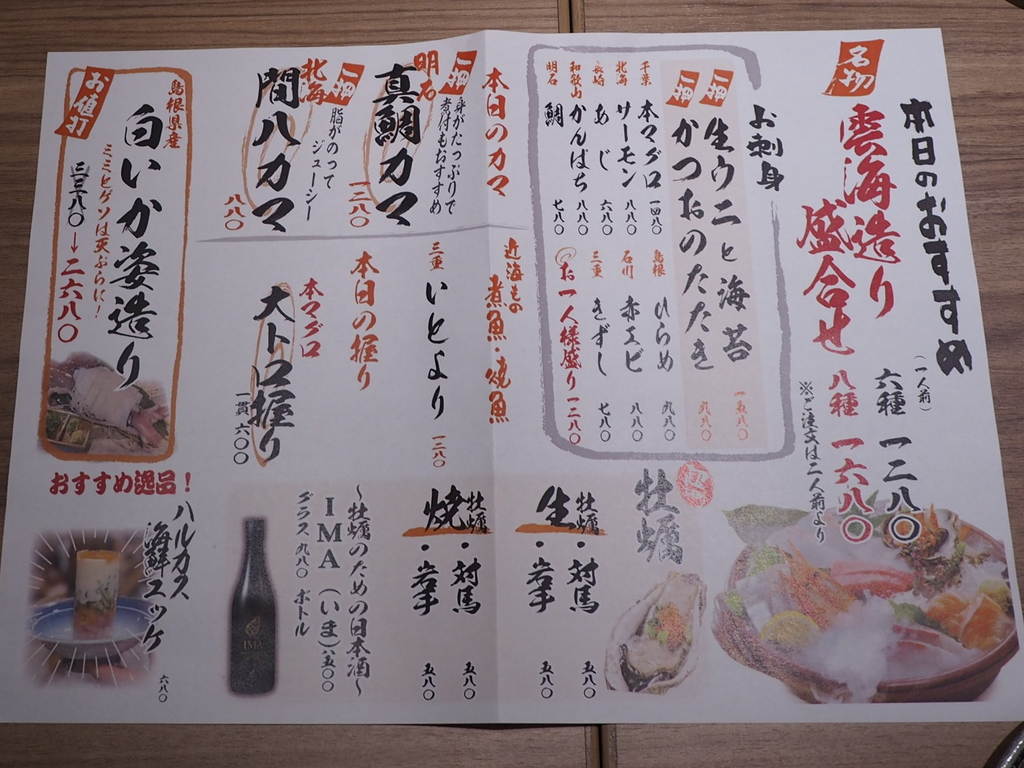 本日のおすすめ
名物
雲海造り
盛合せ
(一人前)
六種 一二八〇
八種 一六八〇
※ご注文は二人前より
お刺身
一押 生ウニと海苔 一五八〇
一押 かつおのたたき 九八〇
千葉 本マグロ 一四八〇
北海 サーモン 八八〇
長崎 あじ 六八〇
和歌山 かんぱち 八八〇
明石 鯛 七八〇
島根 ひらめ 九八〇
石川 赤エビ 八八〇
三重 きずし 七八〇
お一人様盛り 一二八〇
本日のカマ
一押
身がたっぷりで
煮付もおすすめ
明石
真鯛カマ
一二八〇
一押
脂がのって
ジューシー
北海
間八カマ
八八〇
近海もの
煮魚・焼魚
三重 いとより
本日の握り
本マグロ
大トロ握り
一貫 六〇〇
島根県産
お値打
白いか姿造り
ミミとゲソは天ぷらに!
三三八〇→二六八〇
牡蠣
牡蠣 生
・対馬 五八〇
・岩手 五八〇
牡蠣 焼
・対馬 五八〇
・岩手 五八〇
~牡蠣のための日本酒~
IMA(いま)
グラス 九八〇 ボトル 五五〇〇
IMA
おすすめ逸品!
ハルカス
海鮮ユッケ
六八〇